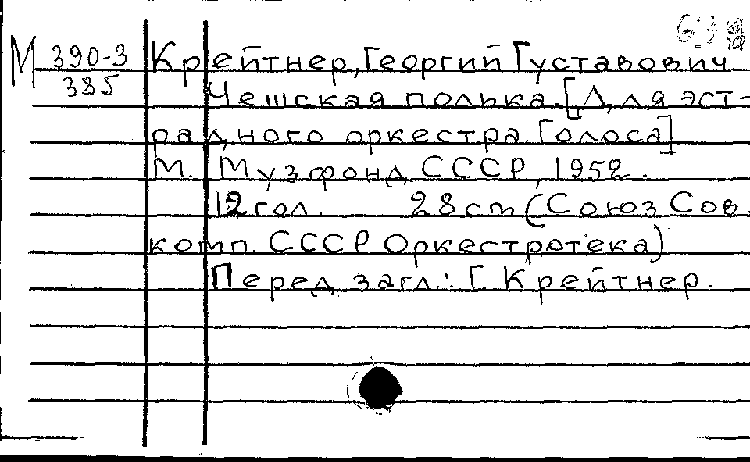 М 390-3 Крейтнер, Георгий Густавович
385 Чешская полька. [Для эст-
радного оркестра. Голоса]
М. Музфонд СССР, 1952.
12 гол. 28 cm (Союз Сов.
комп. СССР Оркестротека)
Перед загл.: Г. Крейтнер.